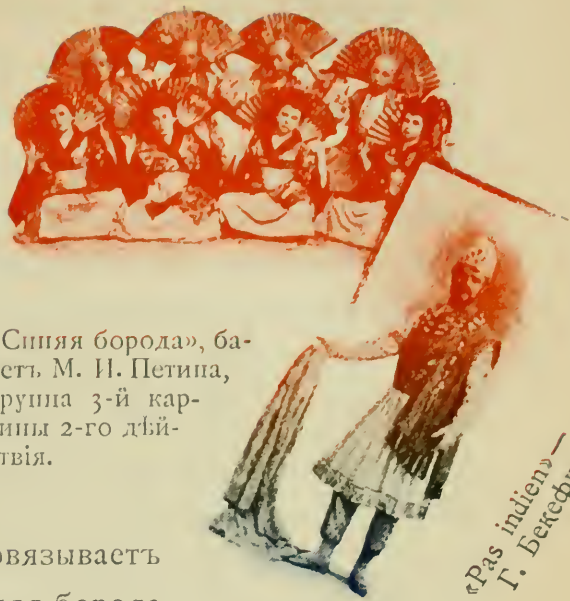 Синяя борода», ба-
етъ М. И. Петипа,
руппа 3-й кар-
ины 2-го дѣй-
твія.
«Pas indien»—
Г. Бекефи
овязываетъ
борода